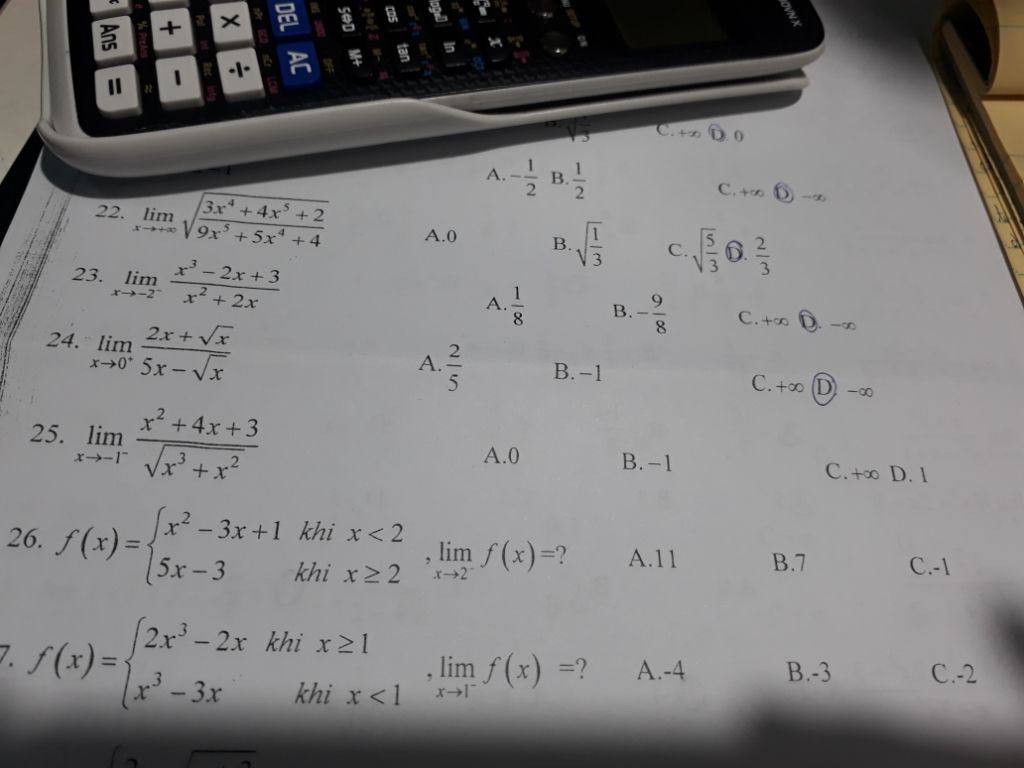 Ans + X DEL
= − ÷ AC
M+
tan
ln
cos
C. +∞ D. 0
A. -1/2 B. 1/2 C. +∞ D. -∞
22. lim x→+∞ √((3x⁴ + 4x⁵ + 2)/(9x⁵ + 5x⁴ + 4)) A.0 B. √(1/3) C. √(5/3) D. 2/3
23. lim x→-2⁻ (x³ - 2x + 3)/(x² + 2x) A. 1/8 B. -9/8 C. +∞ D. -∞
24. lim x→0⁺ (2x + √x)/(5x - √x) A. 2/5 B. -1 C. +∞ D. -∞
25. lim x→-1⁻ (x² + 4x + 3)/√(x³ + x²) A.0 B. -1 C. +∞ D. 1
26. f(x) = { x² - 3x + 1 khi x < 2
5x - 3 khi x ≥ 2 , lim x→2⁻ f(x) =? A.11 B.7 C.-1
7. f(x) = { 2x³ - 2x khi x ≥ 1
x³ - 3x khi x < 1 , lim x→1⁻ f(x) =? A.-4 B.-3 C.-2